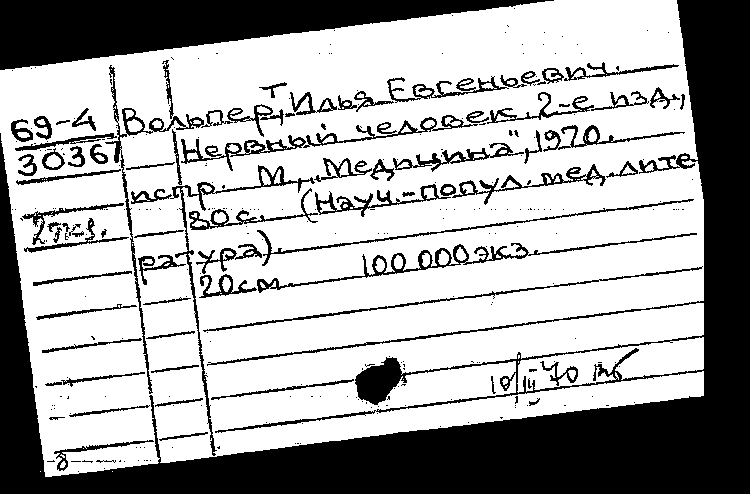 69-4
30367
2 экз.
Вольперт, Илья Евгеньевич.
Нервный человек. 2-е изд.,
испр. М., "Медицина", 1970.
80 с. (Науч.-попул. мед. лите
ратура).
20 см. 100 000 экз.
10/III 70
8